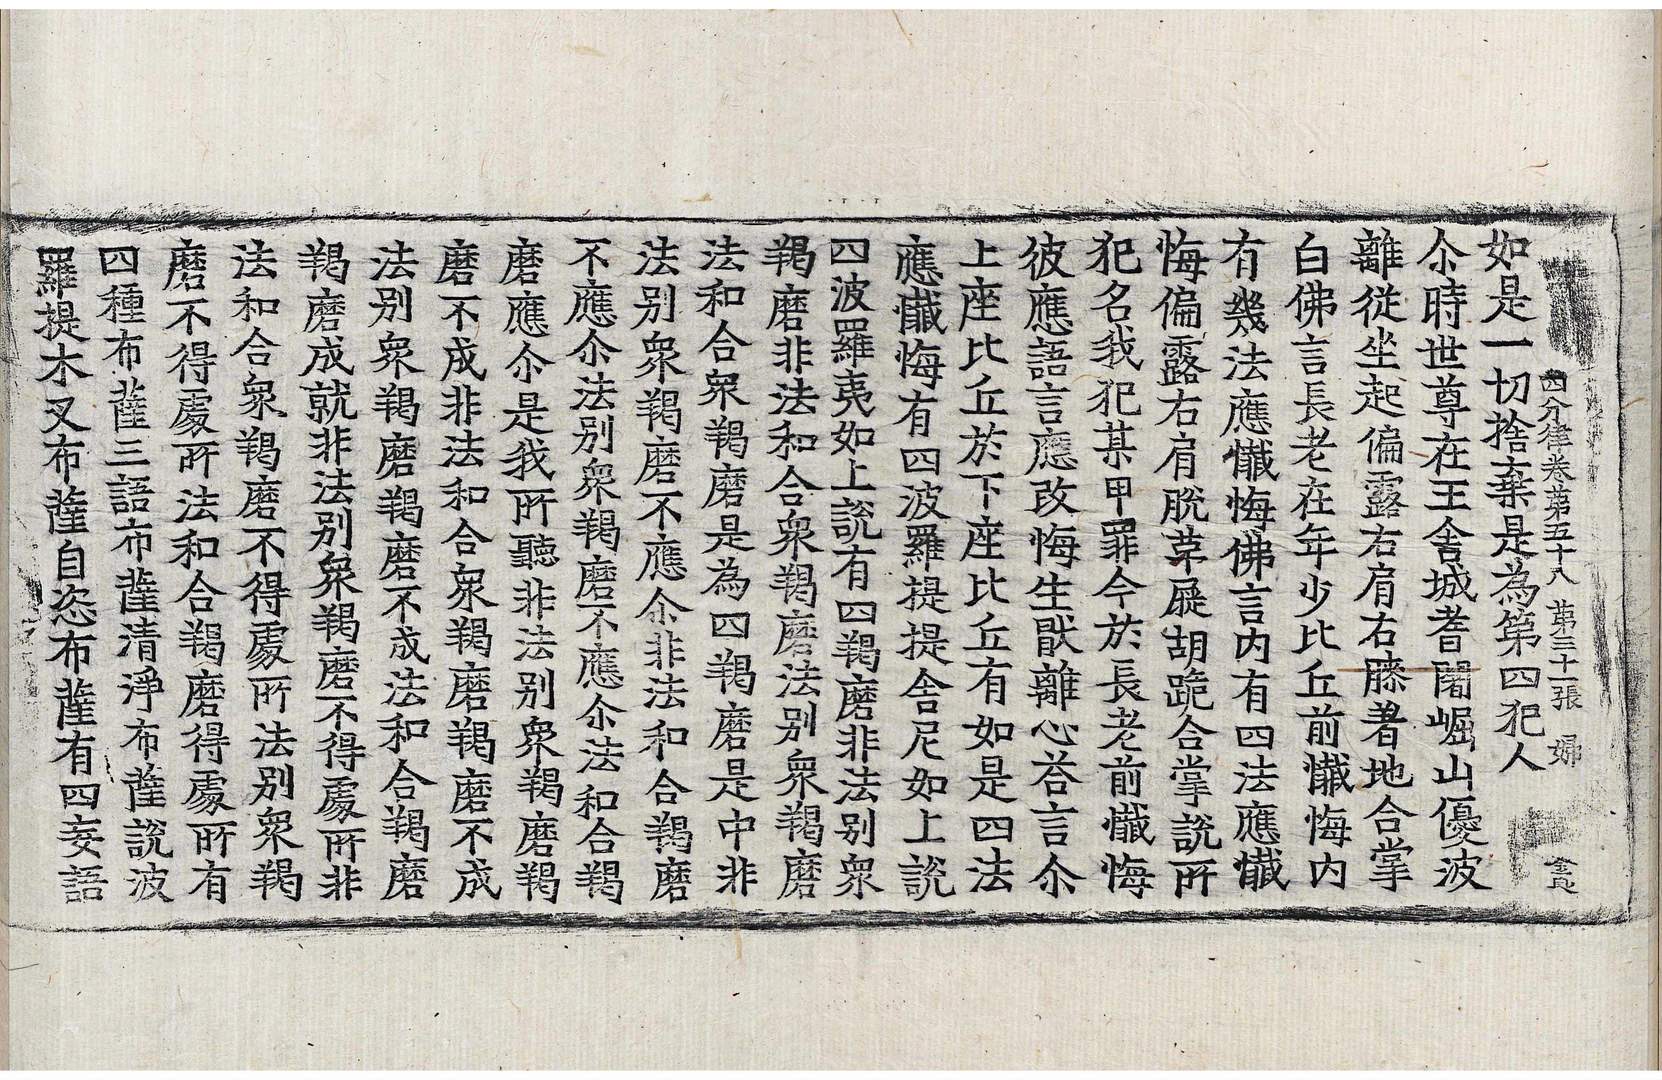 四分律卷第五十八 第三十一張 婦
如是一切捨棄是為第四犯人
尒時世尊在王舍城耆闍崛山優波
離從坐起偏露右肩右膝著地合掌
白佛言長老在年少比丘前懺悔内
有幾法應懺悔佛言内有四法應懺
悔偏露右肩脫革屣胡跪合掌說所
犯名我犯某甲罪今於長老前懺悔
彼應語言應改悔生猒離心荅言尒
上座比丘於下座比丘有如是四法
應懺悔有四波羅提提舍尼如上說
四波羅夷如上說有四羯磨非法别衆
羯磨非法和合衆羯磨法别衆羯磨
法和合衆羯磨是為四羯磨是中非
法别衆羯磨不應尒非法和合羯磨
不應尒法别衆羯磨不應尒法和合羯
磨應尒是我所聽非法别衆羯磨羯
磨不成非法和合衆羯磨羯磨不成
法别衆羯磨羯磨不成法和合羯磨
羯磨成就非法别衆羯磨不得處所非
法和合衆羯磨不得處所法别衆羯
磨不得處所法和合羯磨得處所有
四種布薩三語布薩清淨布薩說波
羅提木叉布薩自恣布薩有四妄語